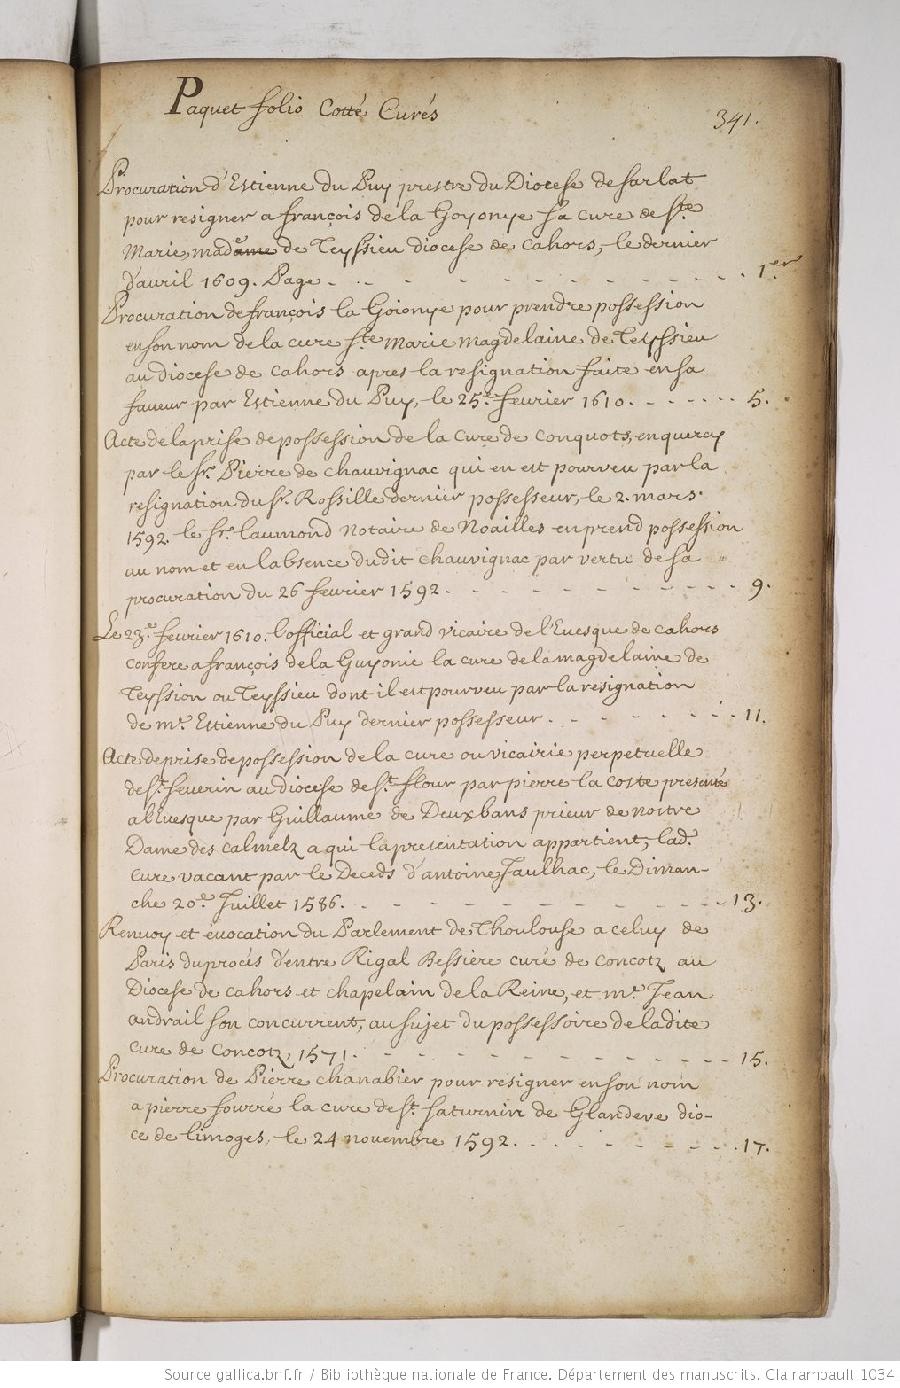 Paquet folio Cotté Curés
341.
Procuration d'Estienne du Puy prestre du Diocese de sarlat
pour resigner a françois de la Goyonye sa cure de Ste
Marie madame de Teyssieu diocese de cahors, le dernier
d'avril 1609. Page - - - - - - - - 1er
Procuration de françois la Goionye pour prendre possession
en son nom de la cure Ste Marie magdelaine de Teyssieu
au diocese de cahors apres la resignation faite en sa
faveur par Estienne du Puy, le 25e fevrier 1610. - - - - - 5.
Acte de la prise de possession de la cure de conquots, en quercy
par le sr. Pierre de chauvignac qui en est pourveu par la
resignation du sr. Rossille dernier possesseur, le 2. mars.
1592. le sr. laumond Notaire de Noailles en prend possession
au nom et en l'absence dudit chauvignac par vertu de sa
procuration du 26 fevrier 1592. - - - - - - - - 9.
Le 23e fevrier 1610. l'official et grand vicaire de l'Evesque de cahors
confere a françois de la Guyonie la cure de la magdelaine de
Teyssion ou Teyssieu dont il est pourveu par la resignation
de me. Estienne du Puy dernier possesseur. - - - - - 11.
Acte de prise de possession de la cure ou vicairie perpetuelle
de st. severin au diocese de st. flour par pierre la coste presenté
a l'Evesque par Guillaume de Deuxbans prieur de nostre
Dame des calmelz a qui la presentation appartient, lad.
cure vacant par le Deceds d'antoine Jaulhac, le Diman-
che 20e Juillet 1586. - - - - - - - - 13.
Renvoy et evocation du Parlement de Thoulouse a celuy de
Paris du procés d'entre Rigal Bessiere curé de concotz au
Diocese de cahors et chapelain de la Reine, et me. Jean
andrail son concurrent, au sujet du possessoire de ladite
cure de Concotz, 1571. - - - - - - - - 15.
Procuration de Pierre chanabier pour resigner en son nom
a pierre fourré la cure de st. saturnin de Glandeve dio-
ce de limoges, le 24 novembre 1592. - - - - - - 17.
Source gallica.bnf.fr / Bibliothèque nationale de France. Département des manuscrits. Clairambault 1034